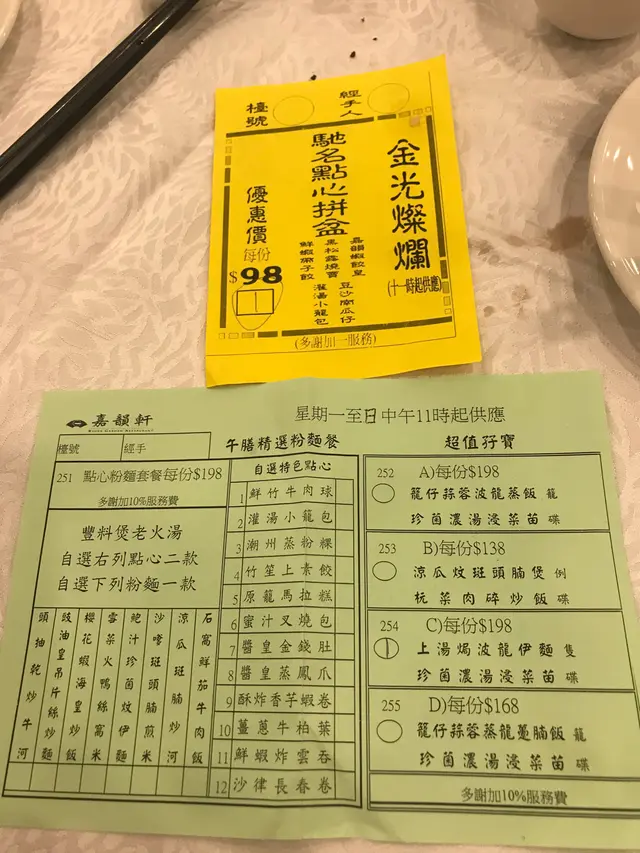 金光燦爛
(十一時起供應)
馳名點心拼盆
嘉韻蝦餃皇
豆沙南瓜仔
黑松露燒賣
灌湯小籠包
鮮蝦帶子餃
經手人
檯號
優惠價
每份
$98
(多謝加一服務)
嘉韻軒
星期一至日中午11時起供應
檯號
經手
午膳精選粉麵餐
超值孖寶
251 點心粉麵套餐每份$198
多謝加10%服務費
豐料煲老火湯
自選右列點心二款
自選下列粉麵一款
石窩鮮茄牛肉飯
涼瓜班腩炒河
沙嗲斑頭腩煎米
鮑汁珍菌炆伊麵
雪菜火鴨絲窩米
櫻花蝦海皇炒飯
豉油皇吊片絲炒麵
頭抽乾炒牛河
自選特色點心
1 鮮竹牛肉球
2 灌湯小籠包
3 潮州蒸粉粿
4 竹笙上素餃
5 原籠馬拉糕
6 蜜汁叉燒包
7 醬皇金錢肚
8 醬皇蒸鳳爪
9 酥炸香芋蝦卷
10 薑蔥牛柏葉
11 鮮蝦炸雲吞
12 沙律長春卷
252 A)每份$198
籠仔蒜蓉波龍蒸飯 籠
珍菌濃湯浸菜苗 碟
253 B)每份$138
涼瓜炆斑頭腩煲 例
杬菜肉碎炒飯 碟
254 C)每份$198
上湯焗波龍伊麵 隻
珍菌濃湯浸菜苗 碟
255 D)每份$168
籠仔蒜蓉蒸龍躉腩飯 籠
珍菌濃湯浸菜苗 碟
多謝加10%服務費